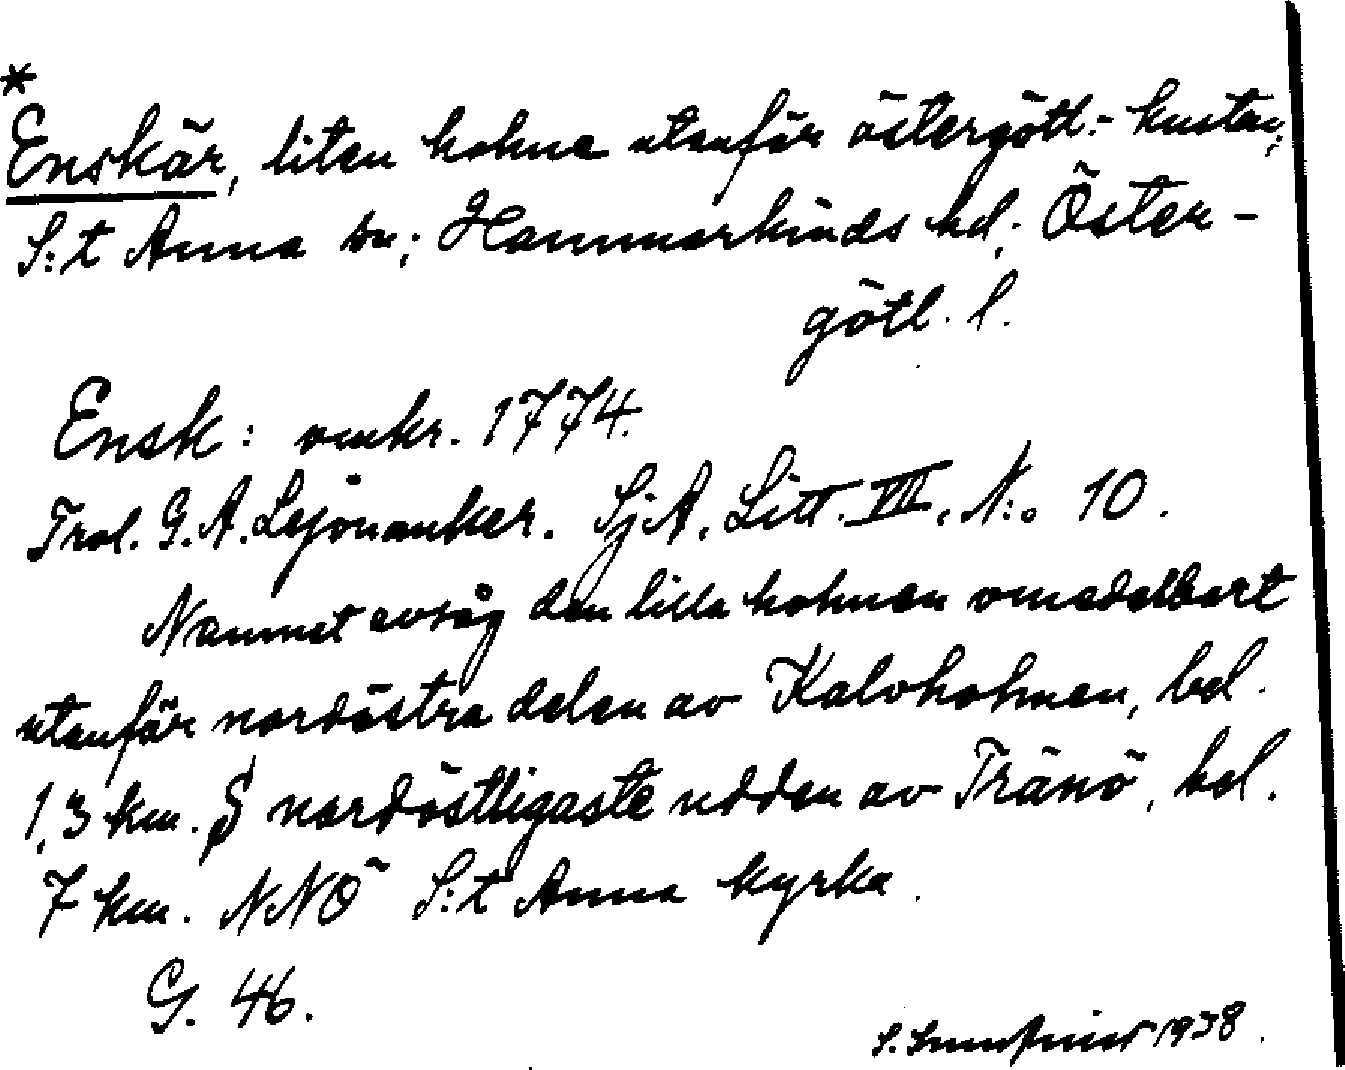 *
Enskär, liten holme utanför östergötl.-kusten;
S:t Anna sn; Hammarkinds hd; Öster-
götl. l.
Ensk: omkr. 1774.
Trol. G. A. Lejonanker. SjA, Litt. VII, N:o 10.
Namnet avsåg den lilla holmen omedelbart
utanför nordöstra delen av Kalvholmen, bel.
1,3 km. S nordöstligaste udden av Tränö, bel.
7 km. NNÖ S:t Anna kyrka.
G. 46.
S. 1938.